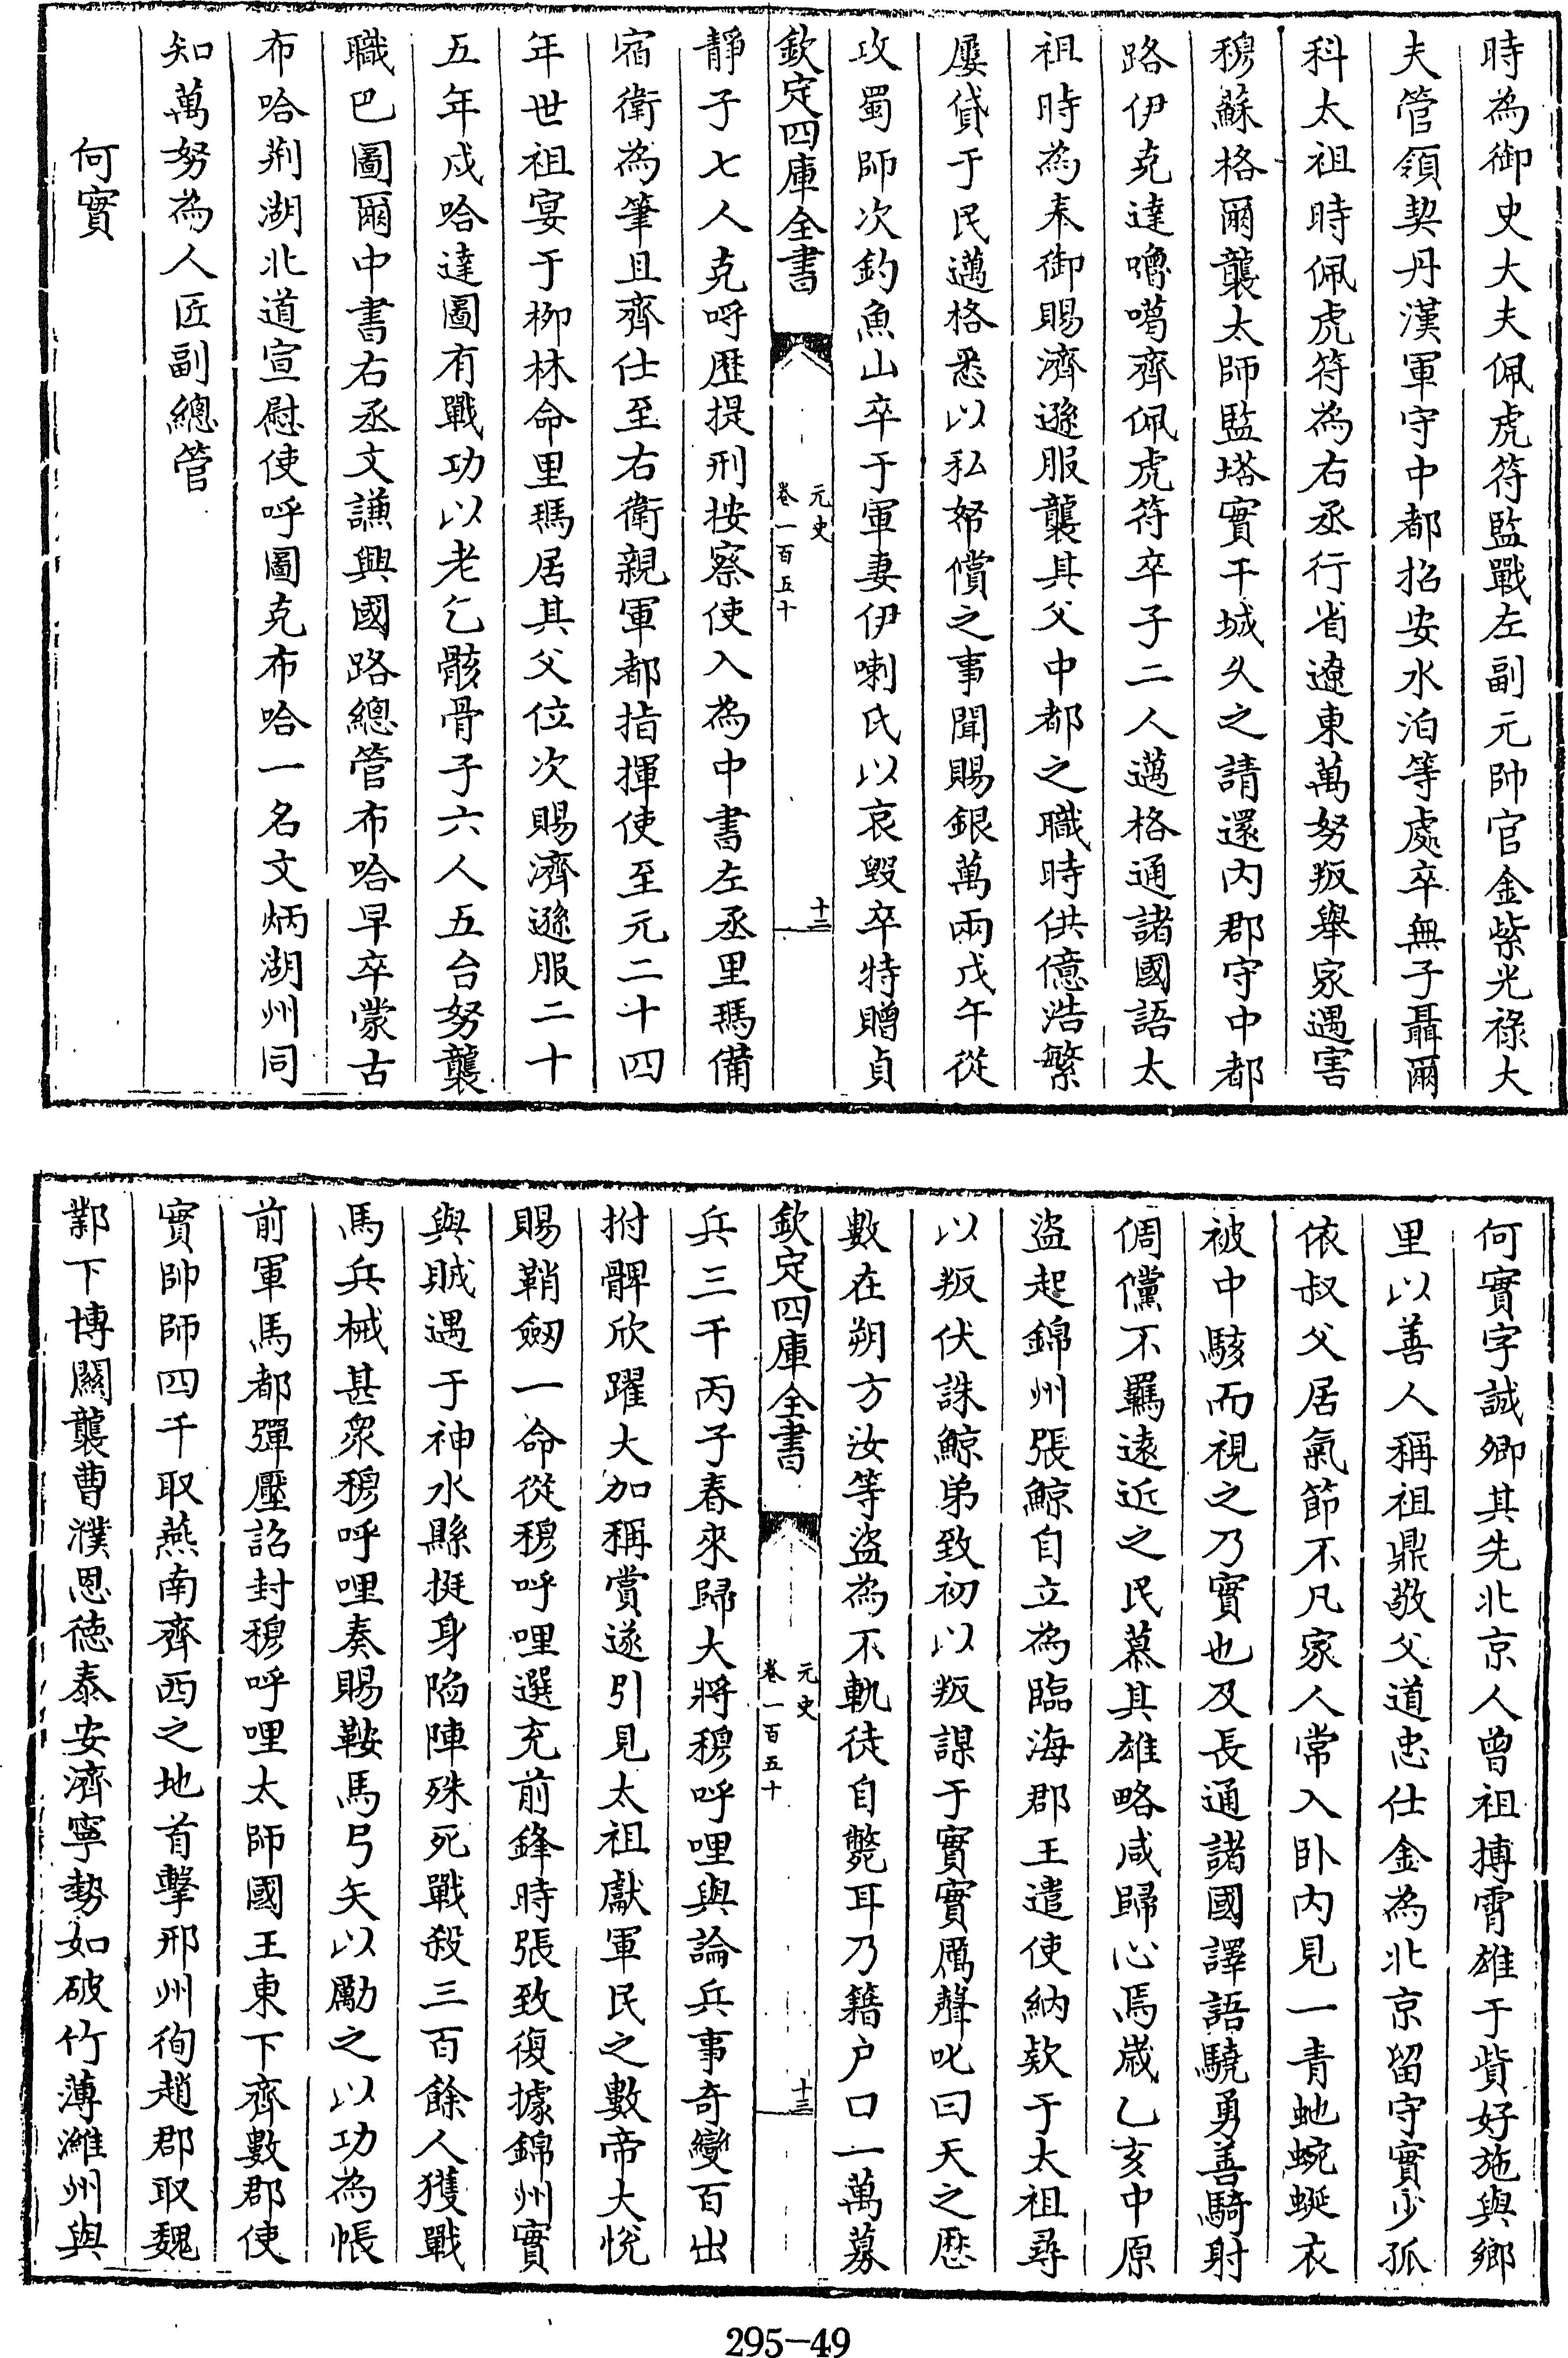 時為御史大夫佩虎符監戰左副元帥官金紫光祿大
夫管領契丹漢軍守中都招安水泊等處卒無子聶爾
科太祖時佩虎符為右丞行省遼東萬努叛舉家遇害
穆蘇格爾襲太師監塔實干城久之請還內郡守中都
路伊克達嚕噶齊佩虎符卒子二人邁格通諸國語太
祖時為奉御賜濟遜服襲其父中都之職時供億浩繁
屢貸于民邁格悉以私帑償之事聞賜銀萬兩戊午從
攻蜀師次釣魚山卒于軍妻伊喇氏以哀毀卒特贈貞
欽定四庫全書
元史
卷一百五十
十二
靜子七人克哷歴提刑按察使入為中書左丞里瑪備
宿衛為筆且齊仕至右衛親軍都指揮使至元二十四
年世祖宴于柳林命里瑪居其父位次賜濟遜服二十
五年戍哈達圖有戰功以老乞骸骨子六人五台努襲
職巴圖爾中書右丞文謙興國路總管布哈早卒蒙古
布哈荆湖北道宣慰使呼圖克布哈一名文炳湖州同
知萬努為人匠副總管
何實
何實字誠卿其先北京人曾祖搏霄雄于貲好施與鄉
里以善人稱祖鼎敬父道忠仕金為北京留守實少孤
依叔父居氣節不凡家人常入卧內見一青虵蜿蜒衣
被中駭而視之乃實也及長通諸國譯語驍勇善騎射
倜儻不羈遠近之民慕其雄略咸歸心焉歲乙亥中原
盜起錦州張鯨自立為臨海郡王遣使納欵于太祖尋
以叛伏誅鯨弟致初以叛謀于實實厲聲叱曰天之厯
數在朔方汝等盜為不軌徒自斃耳乃籍户口一萬募
欽定四庫全書
元史
卷一百五十
十三
兵三千丙子春來歸大將穆呼哩與論兵事奇變百出
拊髀欣躍大加稱賞遂引見太祖獻軍民之數帝大悅
賜鞘劒一命從穆呼哩選充前鋒時張致復據錦州實
與賊遇于神水縣挺身陷陣殊死戰殺三百餘人獲戰
馬兵械甚衆穆呼哩奏賜鞍馬弓矢以勵之以功為帳
前軍馬都彈壓詔封穆呼哩太師國王東下齊數郡使
實帥師四千取燕南齊西之地首擊邢州徇趙郡取魏
鄴下博關襲曹濮恩德泰安濟寧勢如破竹薄濰州與
295-49